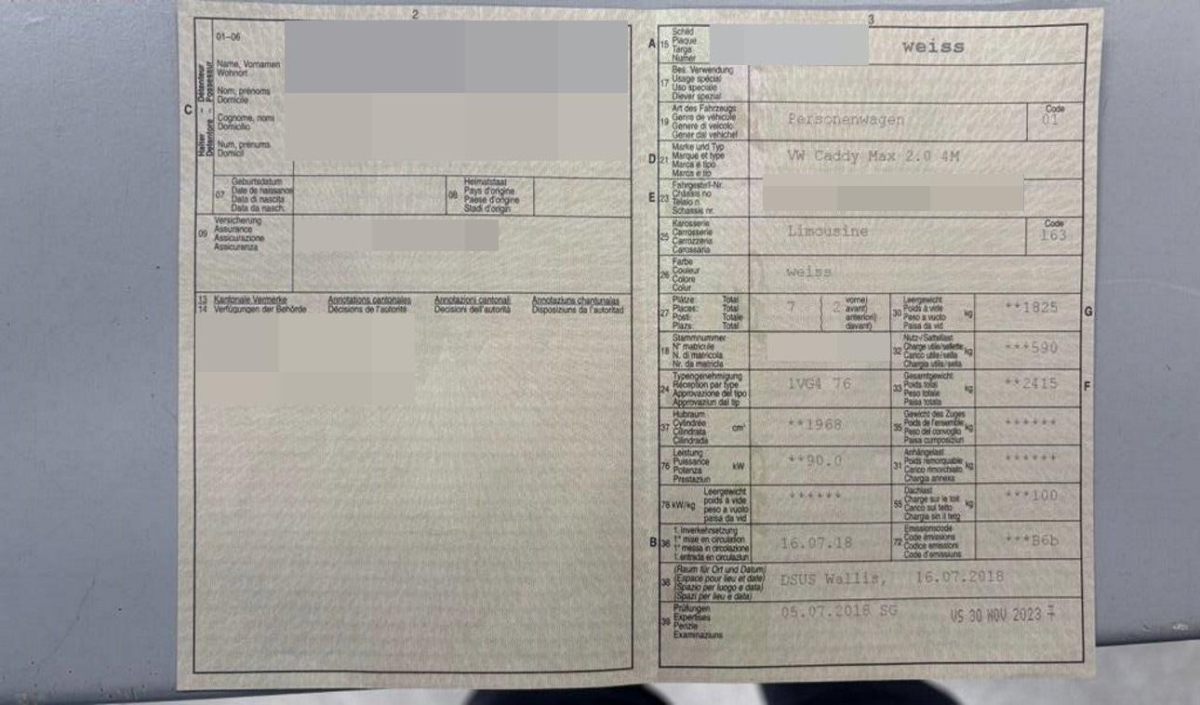 2
01–06
Name, Vornamen
Wohnort
Nom, prénoms
Domicile
Cognome, nomi
Domicilio
Num, prenums
Domicil
C
Halter - Détenteur
Detentore - Possessur
07
Geburtsdatum
Date de naissance
Data di nascita
Data da nasch.
08
Heimatstaat
Pays d'origine
Paese d'origine
Stadi d'origin
09
Versicherung
Assurance
Assicurazione
Assicuranza
13 Kantonale Vermerke Annotations cantonales Annotazioni cantonali Annotaziuns chantunalas
14 Verfügungen der Behörde Décisions de l'autorité Decisioni dell'autorità Disposiziuns da l'autoritad
3
A 15
Schild
Plaque
Targa
Numer
weiss
17
Bes. Verwendung
Usage spécial
Uso speciale
Diever spezial
19
Art des Fahrzeugs
Genre de véhicule
Genere di veicolo
Gener dal vehichel
Personenwagen
Code
01
D 21
Marke und Typ
Marque et type
Marca e tipo
Marca e tip
VW Caddy Max 2.0 4M
E 23
Fahrgestell-Nr.
Châssis no
Telaio n.
Schassis nr.
25
Karosserie
Carrosserie
Carrozzeria
Carossaria
Limousine
Code
163
26
Farbe
Couleur
Colore
Colur
weiss
27
Plätze: Total
Places: Total
Posti: Totale
Plazs: Total
7
2
vorne)
avant)
anteriori)
davant)
30
Leergewicht
Poids à vide
Peso a vuoto
Paisa da vid
kg
**1825
G
18
Stammnummer
N° matricule
N. di matricola
Nr. da matricla
32
Nutz-/Sattellast
Charge utile/sellette
Carico utile/sella
Chargia utila/sella
kg
***590
24
Typengenehmigung
Réception par type
Approvazione del tipo
Approvaziun dal tip
1VG4 76
33
Gesamtgewicht
Poids total
Peso totale
Paisa totala
kg
**2415
F
37
Hubraum
Cylindrée
Cilindrata
Cilindrada
cm³
**1968
35
Gewicht des Zuges
Poids de l'ensemble
Peso del convoglio
Paisa cumposiziun
kg
******
76
Leistung
Puissance
Potenza
Prestaziun
kW
**90.0
31
Anhängelast
Poids remorquable
Carico rimorchiato
Chargia annexa
kg
******
78 kW/kg
Leergewicht
poids à vide
peso a vuoto
paisa da vid
******
55
Dachlast
Charge sur le toit
Carico sul tetto
Chargia sin il tetg
kg
***100
B 36
1. Inverkehrsetzung
1re mise en circulation
1a messa in circolazione
1. entrada en circulaziun
16.07.18
72
Emissionscode
Code émissions
Codice emissioni
Code d'emissiuns
***B6b
38
(Raum für Ort und Datum)
(Espace pour lieu et date)
(Spazio per luogo e data)
(Spazi per lieu e data)
DSUS Wallis, 16.07.2018
39
Prüfungen
Expertises
Perizie
Examinaziuns
05.07.2018 SG
VS 30 NOV 2023 7